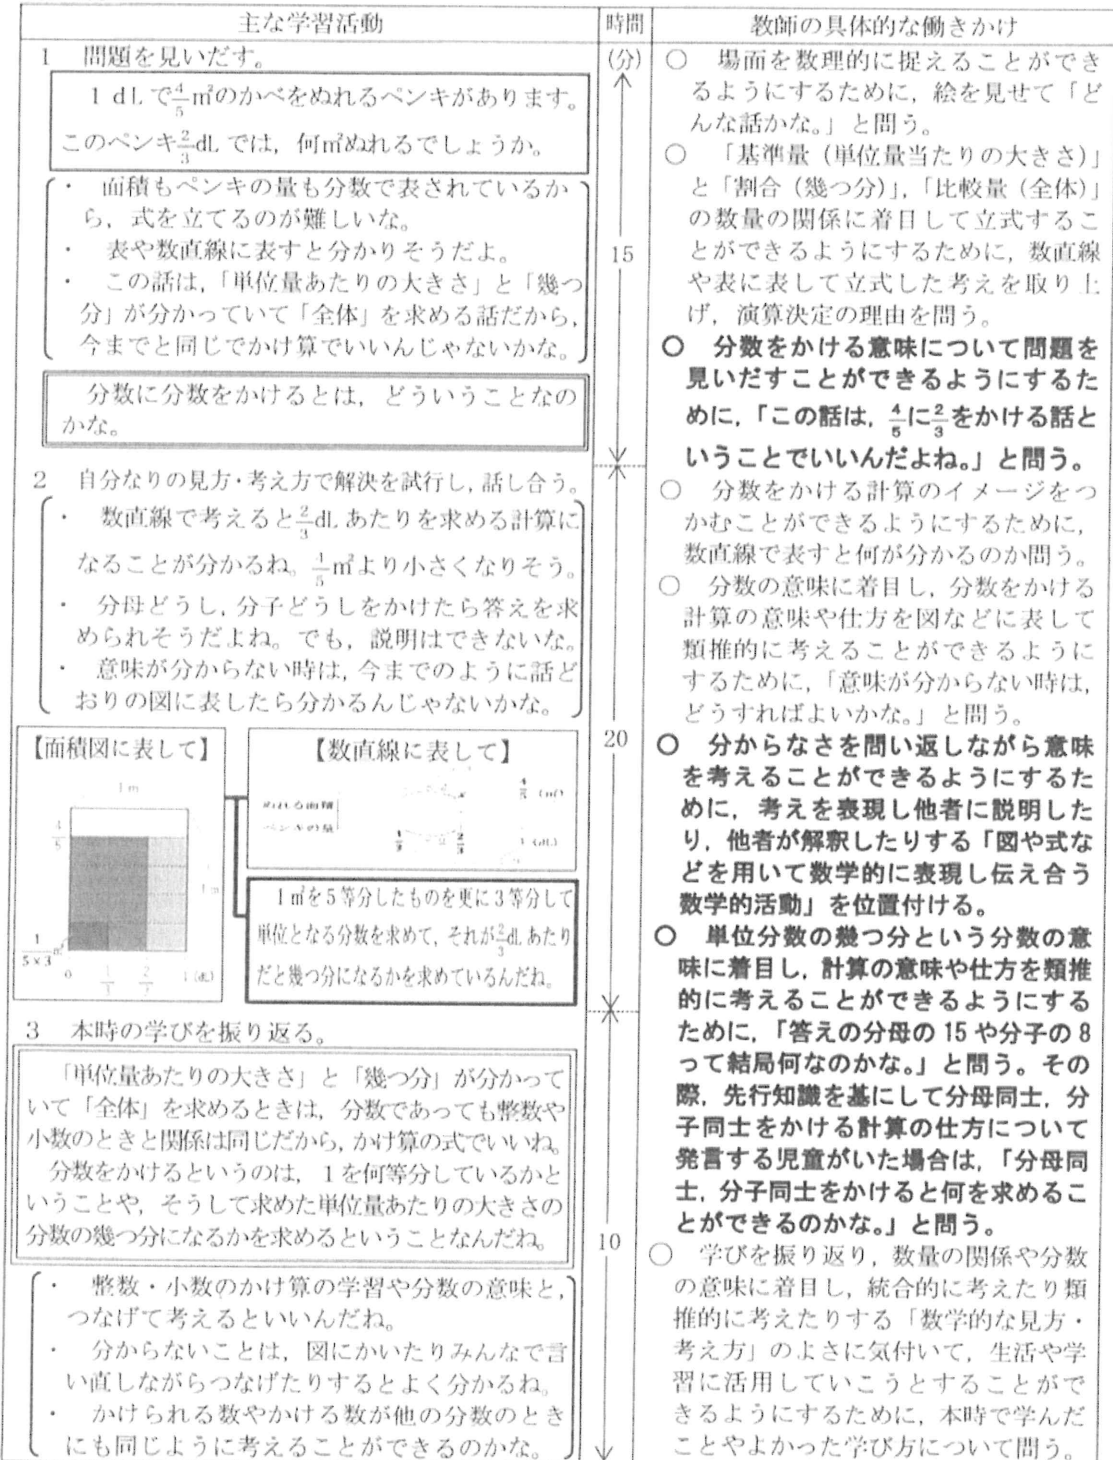 主な学習活動
時間
教師の具体的な働きかけ
1 問題を見いだす。
1 dLで4/5㎡のかべをぬれるペンキがあります。
このペンキ2/3dLでは，何㎡ぬれるでしょうか。
・ 面積もペンキの量も分数で表されているか
ら，式を立てるのが難しいな。
・ 表や数直線に表すと分かりそうだよ。
・ この話は，「単位量あたりの大きさ」と「幾つ
分」が分かっていて「全体」を求める話だから，
今までと同じでかけ算でいいんじゃないかな。
分数に分数をかけるとは，どういうことなの
かな。
2 自分なりの見方・考え方で解決を試行し，話し合う。
・ 数直線で考えると2/3dLあたりを求める計算に
なることが分かるね。4/5㎡より小さくなりそう。
・ 分母どうし，分子どうしをかけたら答えを求
められそうだよね。でも，説明はできないな。
・ 意味が分からない時は，今までのように話ど
おりの図に表したら分かるんじゃないかな。
【面積図に表して】
1m
4/5
1m
1/5×3㎡
0 1/3 2/3 1(dL)
【数直線に表して】
ぬれる面積
4/5 (㎡)
ペンキの量
1/3 2/3 1 (dL)
1㎡を5等分したものを更に3等分して
単位となる分数を求めて，それが2/3dLあたり
だと幾つ分になるかを求めているんだね。
3 本時の学びを振り返る。
「単位量あたりの大きさ」と「幾つ分」が分かって
いて「全体」を求めるときは，分数であっても整数や
小数のときと関係は同じだから，かけ算の式でいいね。
分数をかけるというのは，1を何等分しているかと
いうことや，そうして求めた単位量あたりの大きさの
分数の幾つ分になるかを求めるということなんだね。
・ 整数・小数のかけ算の学習や分数の意味と，
つなげて考えるといいんだね。
・ 分からないことは，図にかいたりみんなで言
い直しながらつなげたりするとよく分かるね。
・ かけられる数やかける数が他の分数のとき
にも同じように考えることができるのかな。
(分)
15
20
10
○ 場面を数理的に捉えることができ
るようにするために，絵を見せて「ど
んな話かな。」と問う。
○ 「基準量（単位量当たりの大きさ）」
と「割合（幾つ分）」，「比較量（全体）」
の数量の関係に着目して立式するこ
とができるようにするために，数直線
や表に表して立式した考えを取り上
げ，演算決定の理由を問う。
○ 分数をかける意味について問題を
見いだすことができるようにするた
めに，「この話は，4/5に2/3をかける話と
いうことでいいんだよね。」と問う。
○ 分数をかける計算のイメージをつ
かむことができるようにするために，
数直線で表すと何が分かるのか問う。
○ 分数の意味に着目し，分数をかける
計算の意味や仕方を図などに表して
類推的に考えることができるように
するために，「意味が分からない時は，
どうすればよいかな。」と問う。
○ 分からなさを問い返しながら意味
を考えることができるようにするた
めに，考えを表現し他者に説明した
り，他者が解釈したりする「図や式な
どを用いて数学的に表現し伝え合う
数学的活動」を位置付ける。
○ 単位分数の幾つ分という分数の意
味に着目し，計算の意味や仕方を類推
的に考えることができるようにする
ために，「答えの分母の15や分子の8
って結局何なのかな。」と問う。その
際，先行知識を基にして分母同士，分
子同士をかける計算の仕方について
発言する児童がいた場合は，「分母同
士，分子同士をかけると何を求めるこ
とができるのかな。」と問う。
○ 学びを振り返り，数量の関係や分数
の意味に着目し，統合的に考えたり類
推的に考えたりする「数学的な見方・
考え方」のよさに気付いて，生活や学
習に活用していこうとすることがで
きるようにするために，本時で学んだ
ことやよかった学び方について問う。